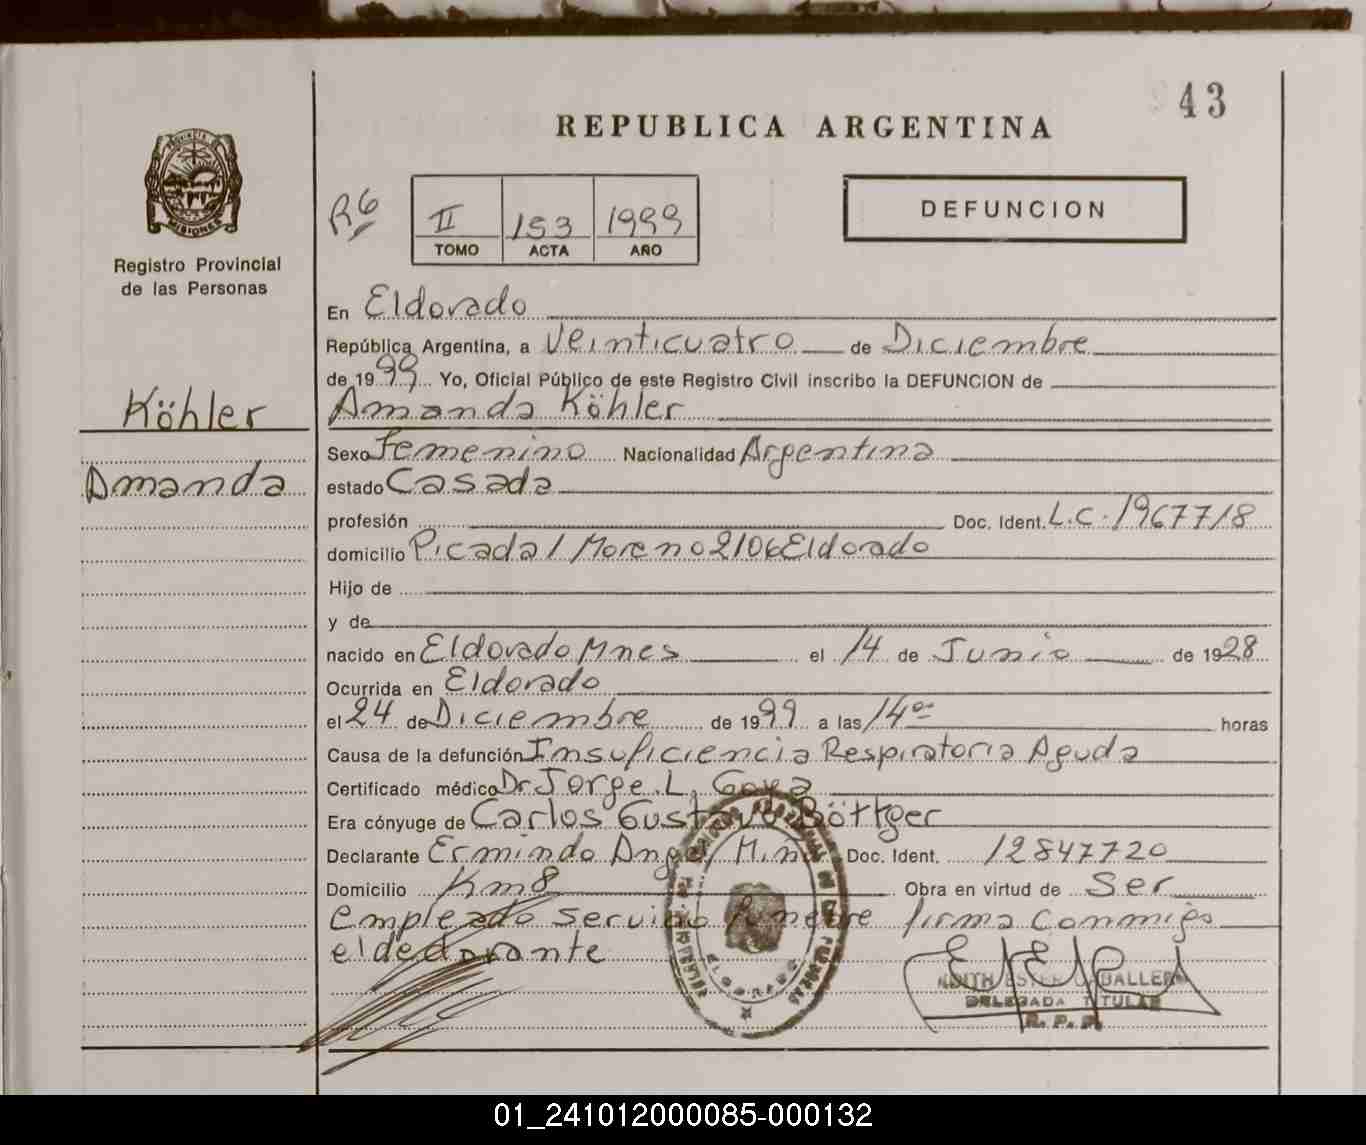 43
REPUBLICA ARGENTINA
PROVINCIA DE
MISIONES
Registro Provincial
de las Personas
R6
II 153 1999
TOMO ACTA AÑO
DEFUNCION
En Eldorado
República Argentina, a Veinticuatro de Diciembre
de 1999 Yo, Oficial Público de este Registro Civil inscribo la DEFUNCION de
Köhler
Amanda Köhler
Sexo Femenino Nacionalidad Argentina
Amanda
estado Casada
profesión Doc. Ident. L.C. 1967718
domicilio Picada 1 Moreno 2106 Eldorado
Hijo de
y de
nacido en Eldorado Mnes el 14 de Junio de 1928
Ocurrida en Eldorado
el 24 de Diciembre de 1999 a las 14 00 horas
Causa de la defunción Insuficiencia Respiratoria Aguda
Certificado médico Dr Jorge L.
Era cónyuge de Carlos Gustavo Böttger
Declarante Ermindo Angel Doc. Ident. 12847720
Domicilio Km 8 Obra en virtud de Ser
empleado servicio funebre firma conmigo
el
ELDORADO
EDITH ESTER CABALLERO
DELEGADA TITULAR
R. P. P.
01_241012000085-000132